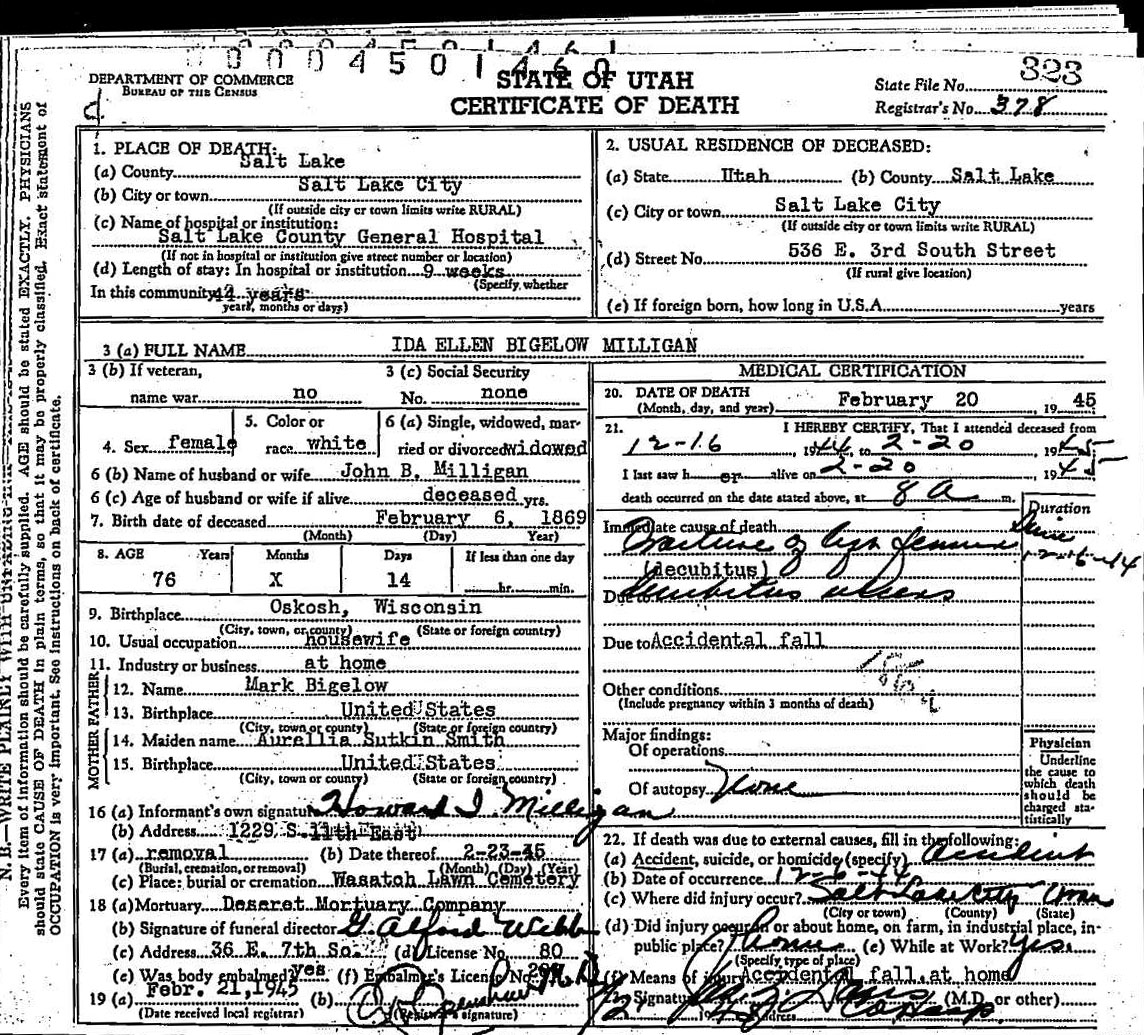 0 0 0 4 5 0 1 4 6 0
DEPARTMENT OF COMMERCE
BUREAU OF THE CENSUS
STATE OF UTAH
CERTIFICATE OF DEATH
State File No. 323
Registrar's No. 378
1. PLACE OF DEATH:
(a) County Salt Lake
(b) City or town Salt Lake City
(If outside city or town limits write RURAL)
(c) Name of hospital or institution:
Salt Lake County General Hospital
(If not in hospital or institution give street number or location)
(d) Length of stay: In hospital or institution 9 weeks
(Specify whether
In this community 44 years
years, months or days)
2. USUAL RESIDENCE OF DECEASED:
(a) State Utah (b) County Salt Lake
(c) City or town Salt Lake City
(If outside city or town limits write RURAL)
(d) Street No. 536 E. 3rd South Street
(If rural give location)
(e) If foreign born, how long in U.S.A. years
3 (a) FULL NAME IDA ELLEN BIGELOW MILLIGAN
3 (b) If veteran, 3 (c) Social Security
name war no No. none
5. Color or 6 (a) Single, widowed, mar-
4. Sex female race white ried or divorced widowed
6 (b) Name of husband or wife John B. Milligan
6 (c) Age of husband or wife if alive deceased yrs.
7. Birth date of deceased February 6, 1869
(Month) (Day) Year)
8. AGE Years Months Days If less than one day
76 X 14 hr. min.
9. Birthplace Oskosh, Wisconsin
(City, town, or county) (State or foreign country)
10. Usual occupation housewife
11. Industry or business at home
FATHER
12. Name Mark Bigelow
13. Birthplace United States
(City, town or county) (State or foreign country)
MOTHER
14. Maiden name Aurellia Sutkin Smith
15. Birthplace United States
(City, town or county) (State or foreign country)
16 (a) Informant's own signature Howard I. Milligan
(b) Address 1229 S. 11th East
17 (a) removal (b) Date thereof 2-23-45
(Burial, cremation, or removal) (Month) (Day) (Year)
(c) Place: burial or cremation Wasatch Lawn Cemetery
18 (a) Mortuary Deseret Mortuary Company
(b) Signature of funeral director G. Alford Webb
(c) Address 36 E. 7th So. (d) License No. 80
(e) Was body embalmed? yes (f) Embalmer's License No.
19 (a) Febr. 21, 1945 (b)
(Date received local registrar) (Registrar's signature)
MEDICAL CERTIFICATION
20. DATE OF DEATH
(Month, day, and year) February 20, 19 45
21. I HEREBY CERTIFY, That I attended deceased from
12-16, 1944, to 2-20, 1945
I last saw h er alive on 2-20, 1945
death occurred on the date stated above, at 8 a m.
Duration
Immediate cause of death
Fracture of
(decubitus)
Due to Decubitus ulcers
Due to Accidental fall
Other conditions
(Include pregnancy within 3 months of death)
Major findings:
Of operations
Of autopsy None
Physician
Underline
the cause to
which death
should be
charged sta-
tistically
22. If death was due to external causes, fill in the following:
(a) Accident, suicide, or homicide (specify) Accident
(b) Date of occurrence 12-6-44
(c) Where did injury occur? Salt Lake City Utah
(City or town) (County) (State)
(d) Did injury occur in or about home, on farm, in industrial place, in
public place? Home (e) While at Work? Yes.
(Specify type of place)
(f) Means of injury Accidental fall at home
23. Signature (M.D. or other)
N. B.—WRITE PLAINLY WITH UNFADING INK
Every item of information should be carefully supplied. AGE should be stated EXACTLY. PHYSICIANS
should state CAUSE OF DEATH in plain terms, so that it may be properly classified. Exact statement of
OCCUPATION is very important. See instructions on back of certificate.